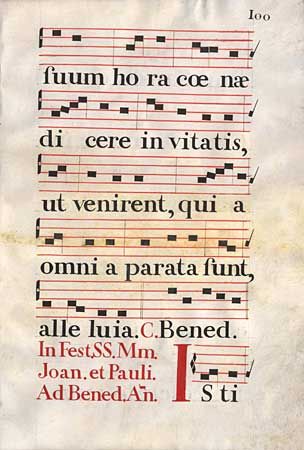 100
ſuum ho ra cœ næ
di cere in vitatis,
ut venirent, qui a
omni a parata ſunt,
alle luia. C. Bened.
In Feſt. SS. Mm.
Joan. et Pauli.
Ad Bened. An̄.
I S ti